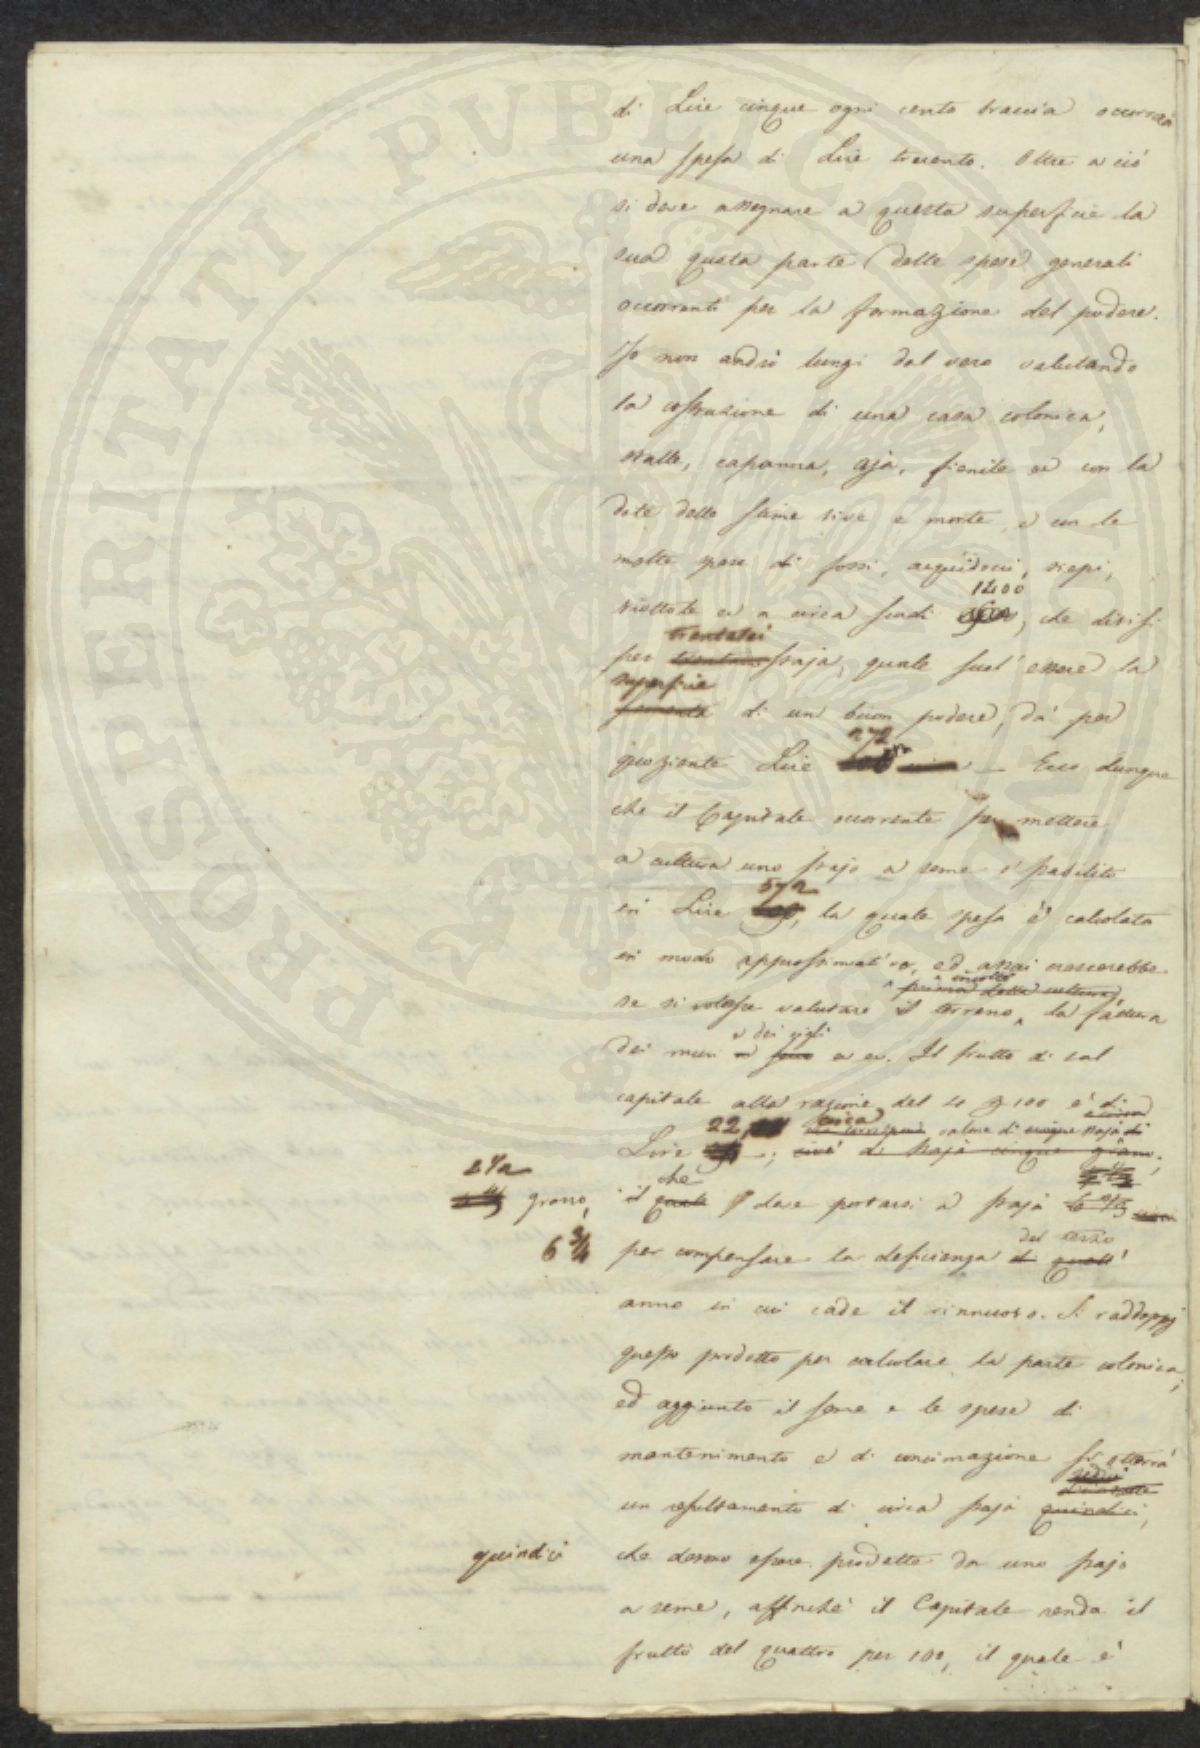 di Lire cinque ogni cento braccia occorrerà
una spesa di Lire trecento. Oltre a ciò
si deve assegnare a questa superficie la
sua quota parte delle spese generali
occorrenti per la formazione del podere.
Io non andrò lungi dal vero valutando
la costruzione di una casa colonica,
stalle, capanna, aja, fienile ec con la
dote delle stime vive e morte, e con le
molte spese di fossi, acquidocci, siepi,
1400
viottole ec a circa scudi , che divisi
trentasei
per staja, quale suol' essere la
superficie
sementa di un buon podere, dà per
272
quoziente Lire — Ecco dunque
che il Capitale occorrente per mettere
a cultura uno stajo a seme è stabilito
572
in Lire , la quale spesa è calcolata
in modo approssimativo, ed assai crescerebbe
incolto
prima della cultura
se si volesse valutare il terreno, la fattura
e dei cigli
dei muri ec ec. Il frutto di tal
capitale alla ragione del 4 p 100 è di
22, circa valore di cinque staja di
Lire ; cioè di staja cinque grano;
2 1/2
grosso,
che
il quale deve portarsi a staja
6 3/4
del terzo
per compensare la deficienza di quell'
anno in cui cade il rinnuovo. Si raddoppj
questo prodotto per calcolare la parte colonica,
ed aggiunto il seme e le spese di
mantenimento e di concimazione si otterrà
sedici
diciasette
un resultamento di circa staja quindici,
quindici
che devono essere prodotte da uno stajo
a seme, affinché il Capitale renda il
frutto del quattro per 100, il quale è